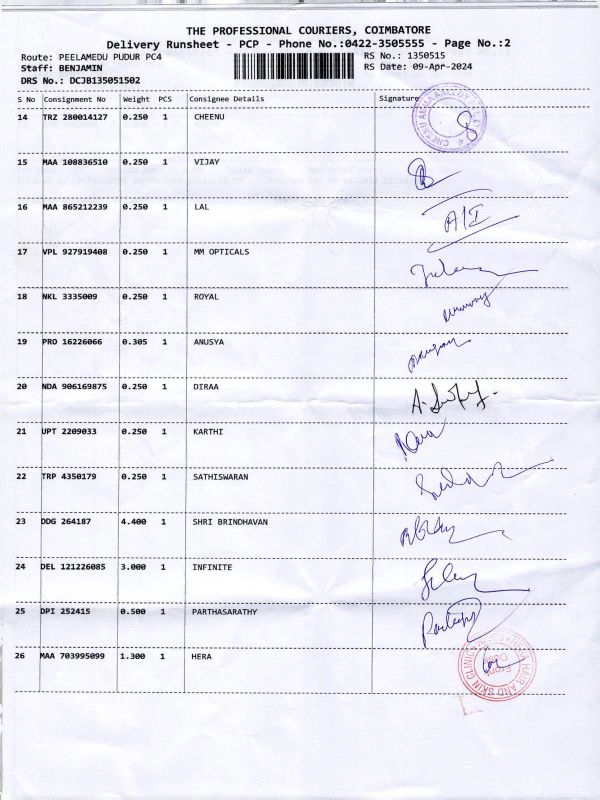 THE PROFESSIONAL COURIERS, COIMBATORE
Delivery Runsheet - PCP - Phone No.:0422-3505555 - Page No.:2
Route: PEELAMEDU PUDUR PC4 RS No.: 1350515
Staff: BENJAMIN RS Date: 09-Apr-2024
DRS No.: DCJB135051502
S No Consignment No Weight PCS Consignee Details Signature
14 TRZ 280014127 0.250 1 CHEENU
15 MAA 108836510 0.250 1 VIJAY
16 MAA 865212239 0.250 1 LAL
17 VPL 927919408 0.250 1 MM OPTICALS
18 NKL 3335009 0.250 1 ROYAL
19 PRO 16226066 0.305 1 ANUSYA
20 NDA 906169875 0.250 1 DIRAA
21 UPT 2209033 0.250 1 KARTHI
22 TRP 4350179 0.250 1 SATHISWARAN
23 DDG 264187 4.400 1 SHRI BRINDHAVAN
24 DEL 121226085 3.000 1 INFINITE
25 DPI 252415 0.500 1 PARTHASARATHY
26 MAA 703995099 1.300 1 HERA
HAIR AND SKIN CLINIC